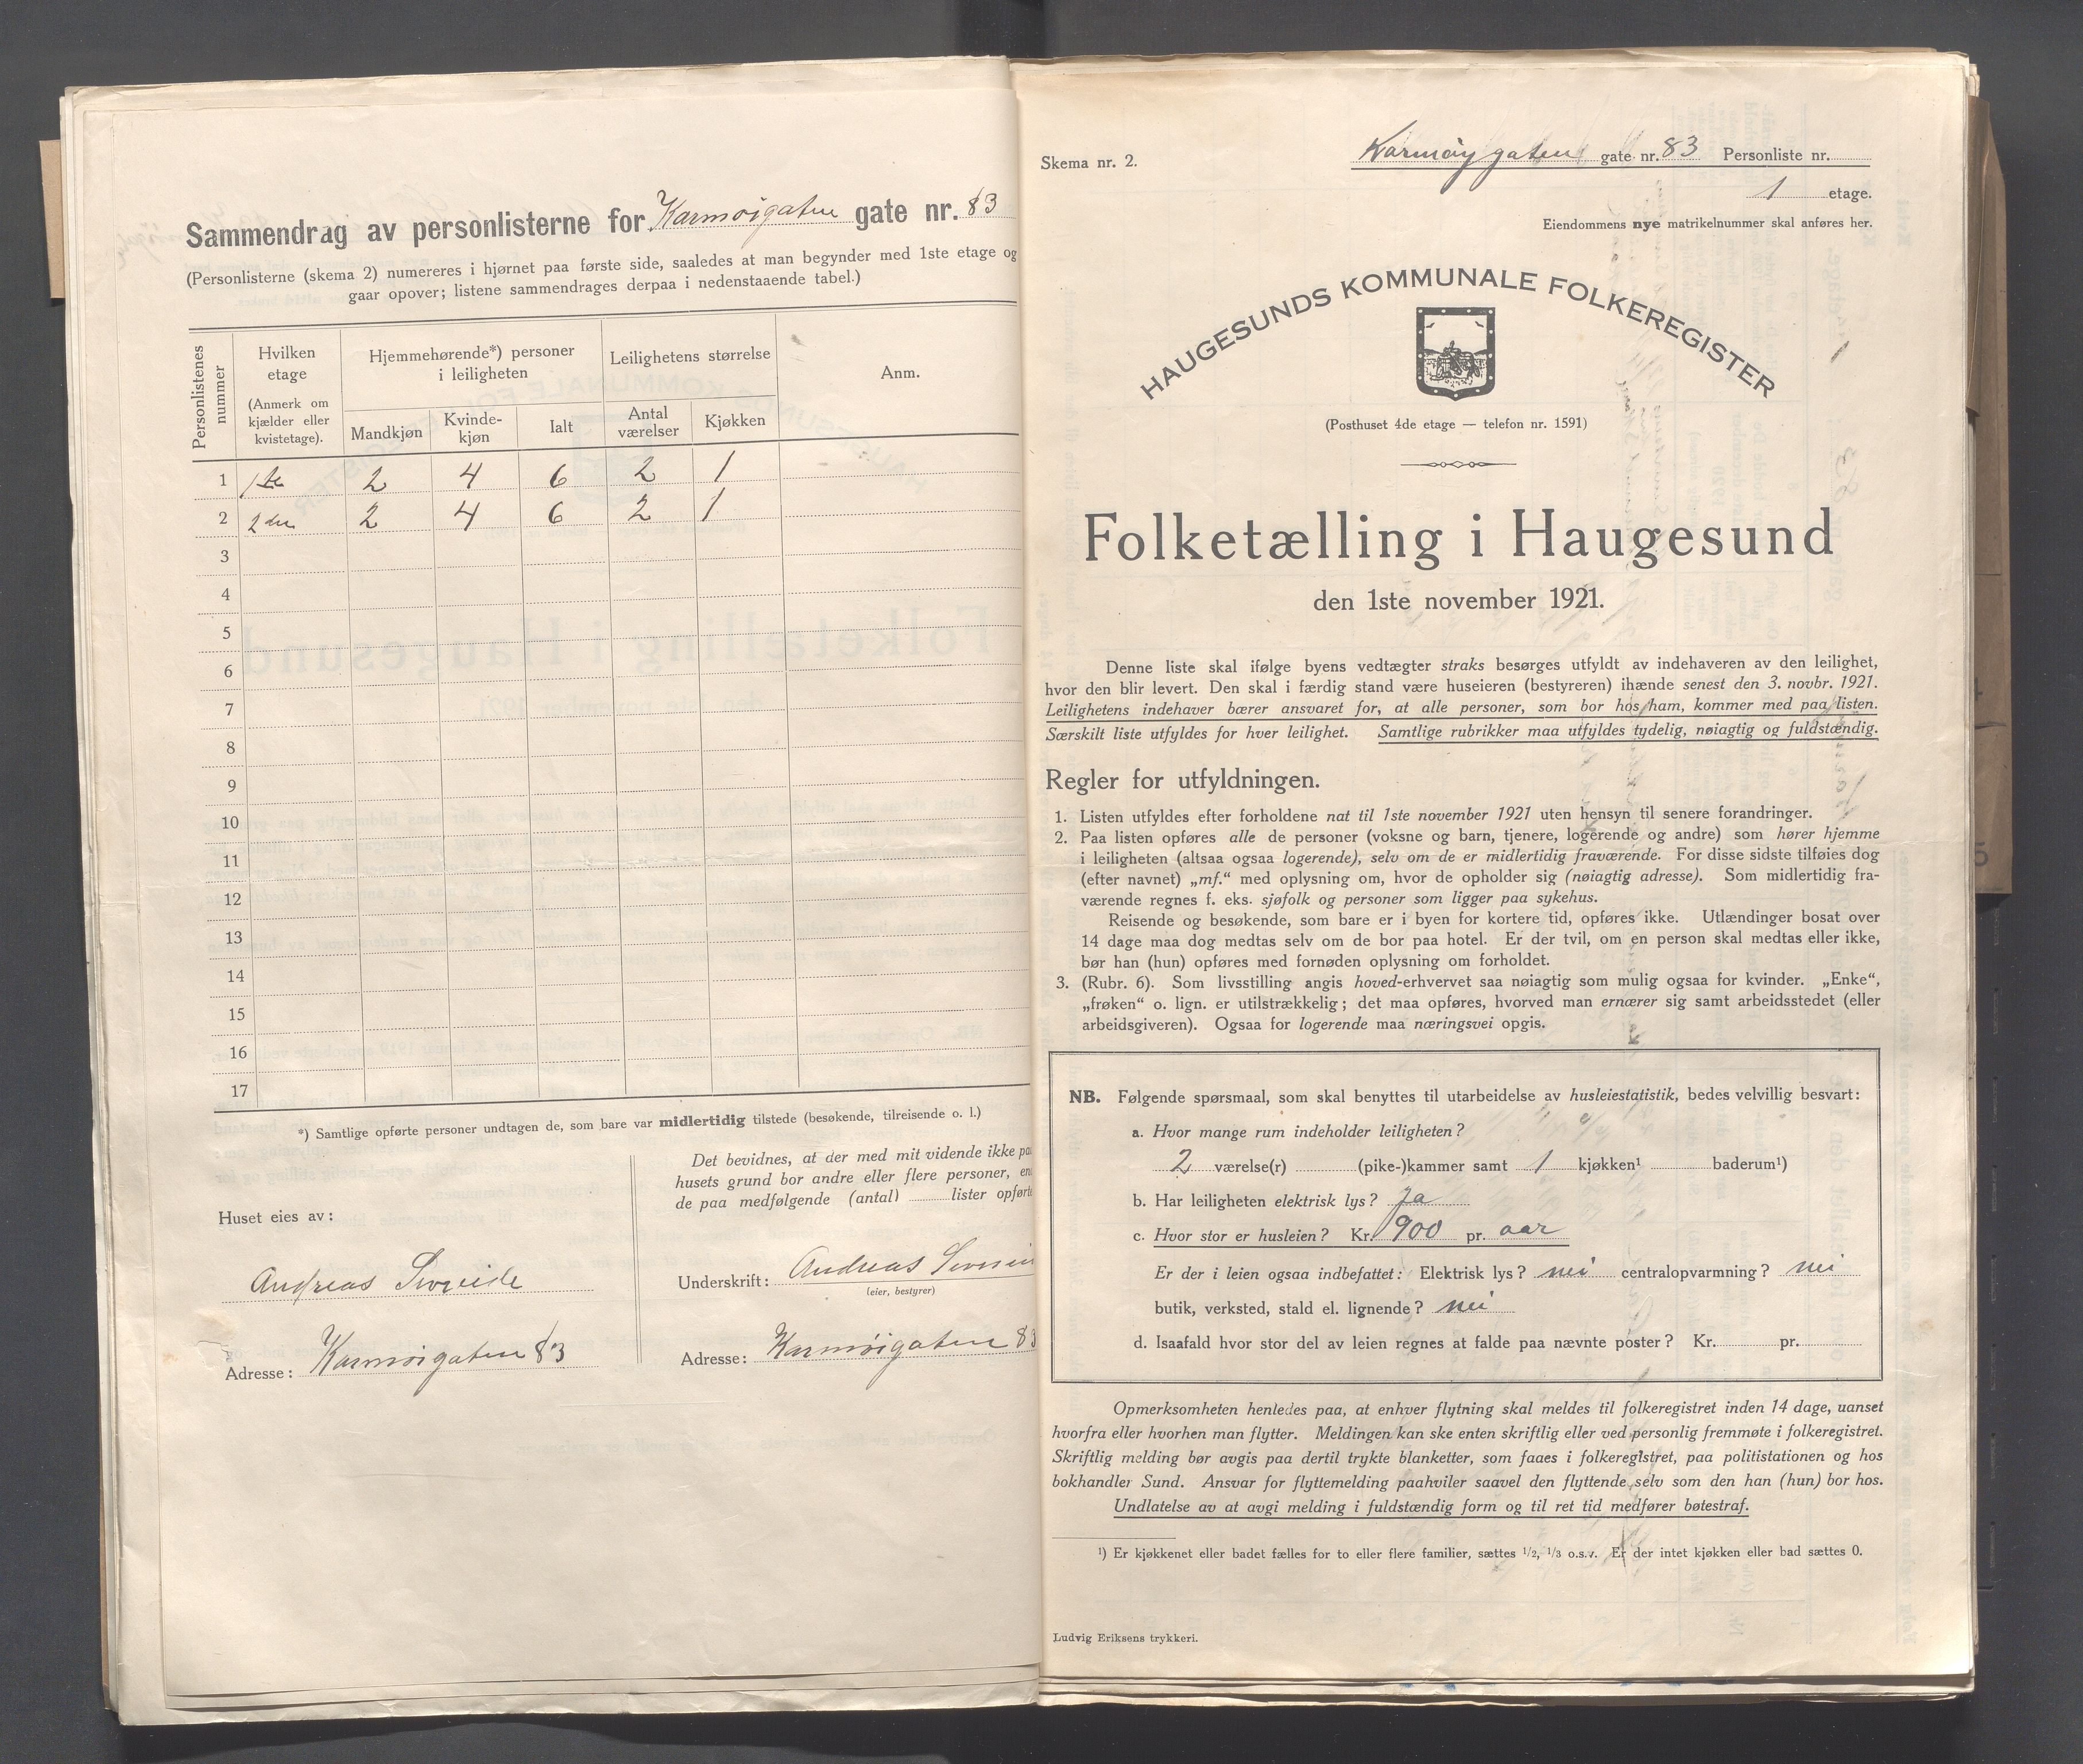 Sammendrag av personlisterne for Karmøigaten gate nr. 83
(Personlisterne (skema 2) numereres i hjørnet paa første side, saaledes at man begynder med 1ste etage og
gaar opover; listene sammendrages derpaa i nedenstaaende tabel.)
Personlistenes nummer
Hvilken etage
(Anmerk om kjælder eller kvistetage).
Hjemmehørende*) personer i leiligheten
Leilighetens størrelse
Anm.
Mandkjøn
Kvinde-kjøn
Ialt
Antal værelser
Kjøkken
1 1ste 2 4 6 2 1
2 2den 2 4 6 2 1
3
4
5
6
7
8
9
10
11
12
13
14
15
16
17
*) Samtlige opførte personer undtagen de, som bare var midlertidig tilstede (besøkende, tilreisende o. l.)
Huset eies av:
Andreas
Adresse: Karmøigaten 83
Det bevidnes, at der med mit vidende ikke paa
husets grund bor andre eller flere personer, en
de paa medfølgende (antal) lister opført
Underskrift: Andreas
(eier, bestyrer)
Adresse: Karmøigaten 83
Skema nr. 2.
Karmøygaten gate nr. 83 Personliste nr.
1 etage.
Eiendommens nye matrikelnummer skal anføres her.
HAUGESUNDS KOMMUNALE FOLKEREGISTER
(Posthuset 4de etage — telefon nr. 1591)
Folketælling i Haugesund
den 1ste november 1921.
Denne liste skal ifølge byens vedtægter straks besørges utfyldt av indehaveren av den leilighet,
hvor den blir levert. Den skal i færdig stand være huseieren (bestyreren) ihænde senest den 3. novbr. 1921.
Leilighetens indehaver bærer ansvaret for, at alle personer, som bor hos ham, kommer med paa listen.
Særskilt liste utfyldes for hver leilighet. Samtlige rubrikker maa utfyldes tydelig, nøiagtig og fuldstændig.
Regler for utfyldningen.
1. Listen utfyldes efter forholdene nat til 1ste november 1921 uten hensyn til senere forandringer.
2. Paa listen opføres alle de personer (voksne og barn, tjenere, logerende og andre) som hører hjemme
i leiligheten (altsaa ogsaa logerende), selv om de er midlertidig fraværende. For disse sidste tilføies dog
(efter navnet) „mf.“ med oplysning om, hvor de opholder sig (nøiagtig adresse). Som midlertidig fra-
værende regnes f. eks. sjøfolk og personer som ligger paa sykehus.
Reisende og besøkende, som bare er i byen for kortere tid, opføres ikke. Utlændinger bosat over
14 dage maa dog medtas selv om de bor paa hotel. Er der tvil, om en person skal medtas eller ikke,
bør han (hun) opføres med fornøden oplysning om forholdet.
3. (Rubr. 6). Som livsstilling angis hoved-erhvervet saa nøiagtig som mulig ogsaa for kvinder. „Enke“,
„frøken“ o. lign. er utilstrækkelig; det maa opføres, hvorved man ernærer sig samt arbeidsstedet (eller
arbeidsgiveren). Ogsaa for logerende maa næringsvei opgis.
NB. Følgende spørsmaal, som skal benyttes til utarbeidelse av husleiestatistik, bedes velvillig besvart:
a. Hvor mange rum indeholder leiligheten?
2 værelse(r) (pike-)kammer samt 1 kjøkken¹ baderum¹)
b. Har leiligheten elektrisk lys? ja
c. Hvor stor er husleien? Kr. 900 pr. aar
Er der i leien ogsaa indbefattet: Elektrisk lys? nei centralopvarmning? nei
butik, verksted, stald el. lignende? nei
d. Isaafald hvor stor del av leien regnes at falde paa nævnte poster? Kr. pr.
Opmerksomheten henledes paa, at enhver flytning skal meldes til folkeregistret inden 14 dage, uanset
hvorfra eller hvorhen man flytter. Meldingen kan ske enten skriftlig eller ved personlig fremmøte i folkeregistret.
Skriftlig melding bør avgis paa dertil trykte blanketter, som faaes i folkeregistret, paa politistationen og hos
bokhandler Sund. Ansvar for flyttemelding paahviler saavel den flyttende selv som den han (hun) bor hos.
Undlatelse av at avgi melding i fuldstændig form og til ret tid medfører bøtestraf.
¹) Er kjøkkenet eller badet fælles for to eller flere familier, sættes 1/2, 1/3 o.s.v. Er der intet kjøkken eller bad sættes 0.
Ludvig Eriksens trykkeri.